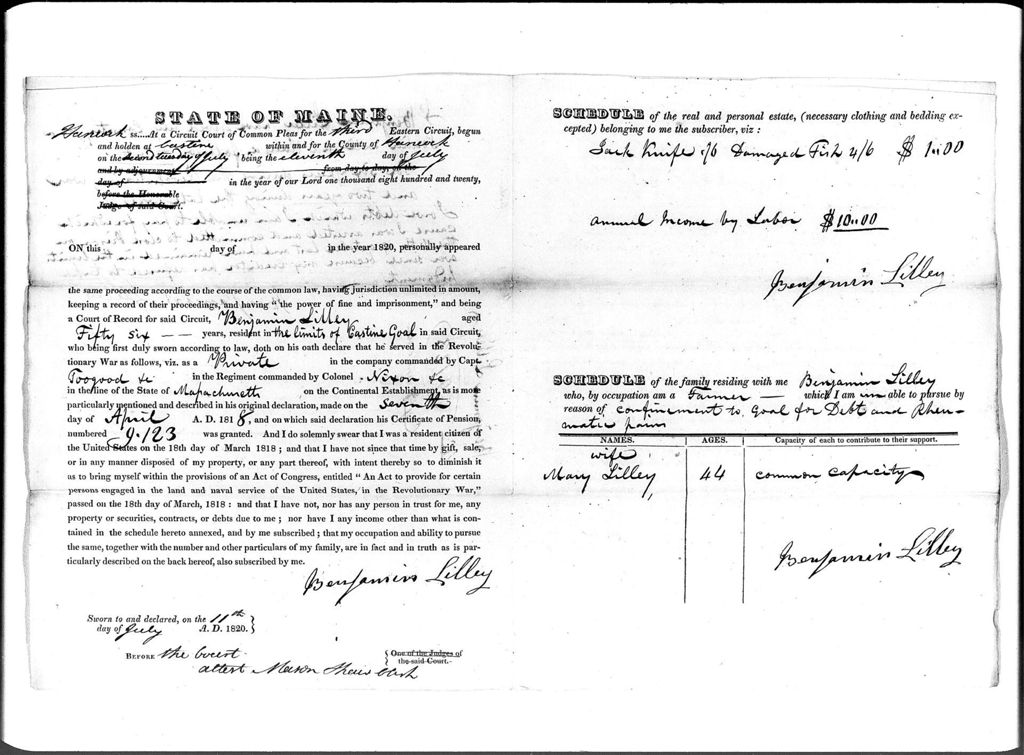 STATE OF MAINE.
Hancock ss....At a Circuit Court of Common Pleas for the third Eastern Circuit, begun
and holden at Castine within and for the County of Hancock
on the second tuesday of July being the eleventh day of July
and by adjournment from day to day, to the
day of in the year of our Lord one thousand eight hundred and twenty,
before the Honorable
Judge of said Court.
ON this day of in the year 1820, personally appeared
the same proceeding according to the course of the common law, having Jurisdiction unlimited in amount,
keeping a record of their proceedings, and having "the power of fine and imprisonment," and being
a Court of Record for said Circuit, Benjamin Lilley aged
Fifty Six — — years, resident in the limits of Castine Goal in said Circuit,
who being first duly sworn according to law, doth on his oath declare that he served in the Revolu-
tionary War as follows, viz. as a Private in the company commanded by Capt.
Toogood &c in the Regiment commanded by Colonel Nixon &c
in the line of the State of Massachusetts on the Continental Establishment, as is more
particularly mentioned and described in his original declaration, made on the seventh
day of April A. D. 1818, and on which said declaration his Certificate of Pension,
numbered 9.123 was granted. And I do solemnly swear that I was a resident citizen of
the United States on the 18th day of March 1818; and that I have not since that time by gift, sale,
or in any manner disposed of my property, or any part thereof, with intent thereby so to diminish it
as to bring myself within the provisions of an Act of Congress, entitled "An Act to provide for certain
persons engaged in the land and naval service of the United States, in the Revolutionary War,"
passed on the 18th day of March, 1818: and that I have not, nor has any person in trust for me, any
property or securities, contracts, or debts due to me; nor have I any income other than what is con-
tained in the schedule hereto annexed, and by me subscribed; that my occupation and ability to pursue
the same, together with the number and other particulars of my family, are in fact and in truth as is par-
ticularly described on the back hereof, also subscribed by me.
Benjamin Lilley
Sworn to and declared, on the 11th
day of July A. D. 1820.
BEFORE the Court One of the Judges of
the said Court.
attest Mason Shaw Clerk
SCHEDULE of the real and personal estate, (necessary clothing and bedding ex-
cepted) belonging to me the subscriber, viz:
Jack Knife 1/6 Damaged Fish 4/6 $1..00
annual Income by Labor $10..00
Benjamin Lilley
SCHEDULE of the family residing with me Benjamin Lilley
who, by occupation am a Farmer — which I am un able to pursue by
reason of confinement to Goal for Debt and Rheu-
matic pains
NAMES. AGES. Capacity of each to contribute to their support.
wife
Mary Lilley 44 common capacity
Benjamin Lilley